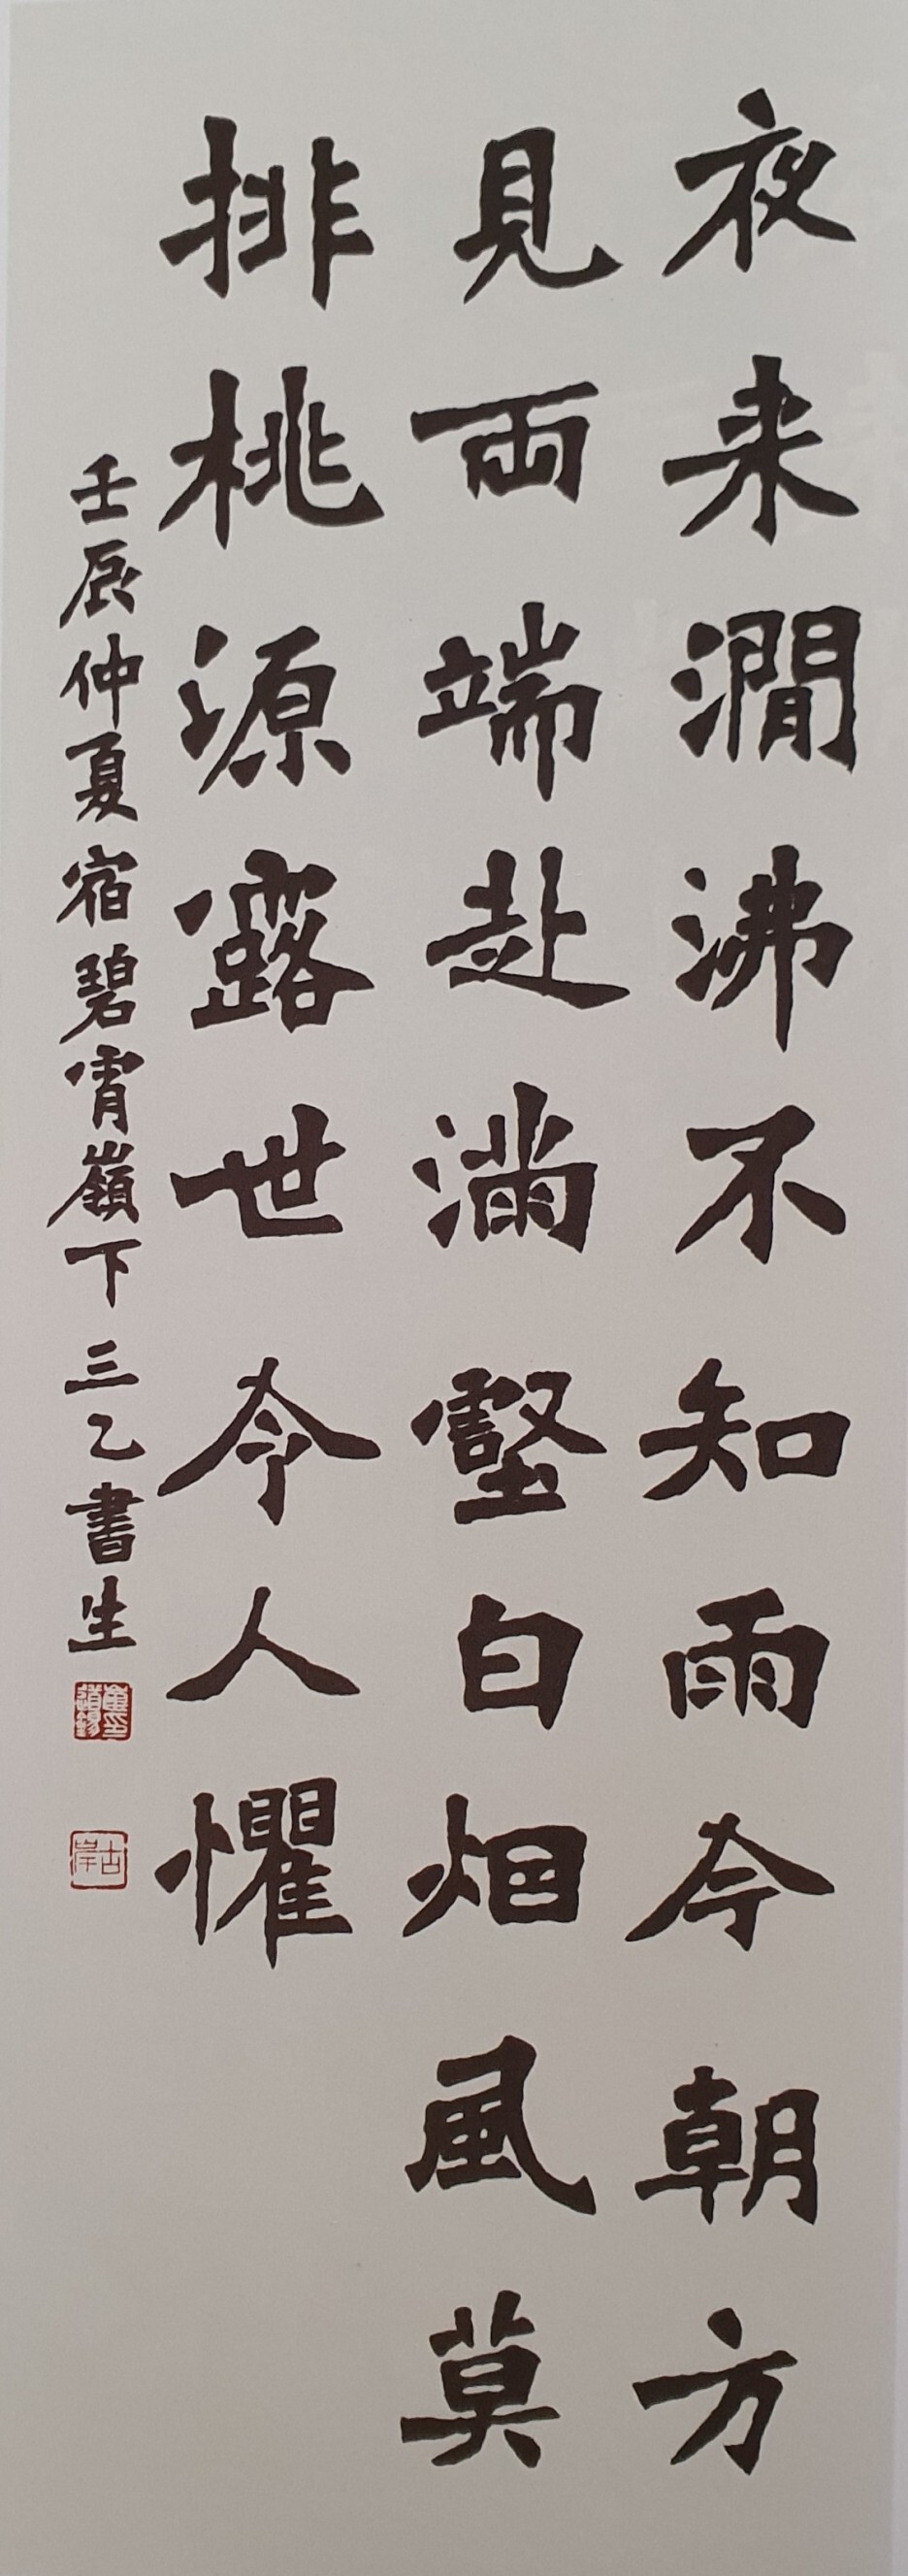 夜来澗沸不知雨今朝方
見両端赴満壑白烟風莫
排桃源露世今人懼
壬辰仲夏宿碧霄嶺下三乙書生